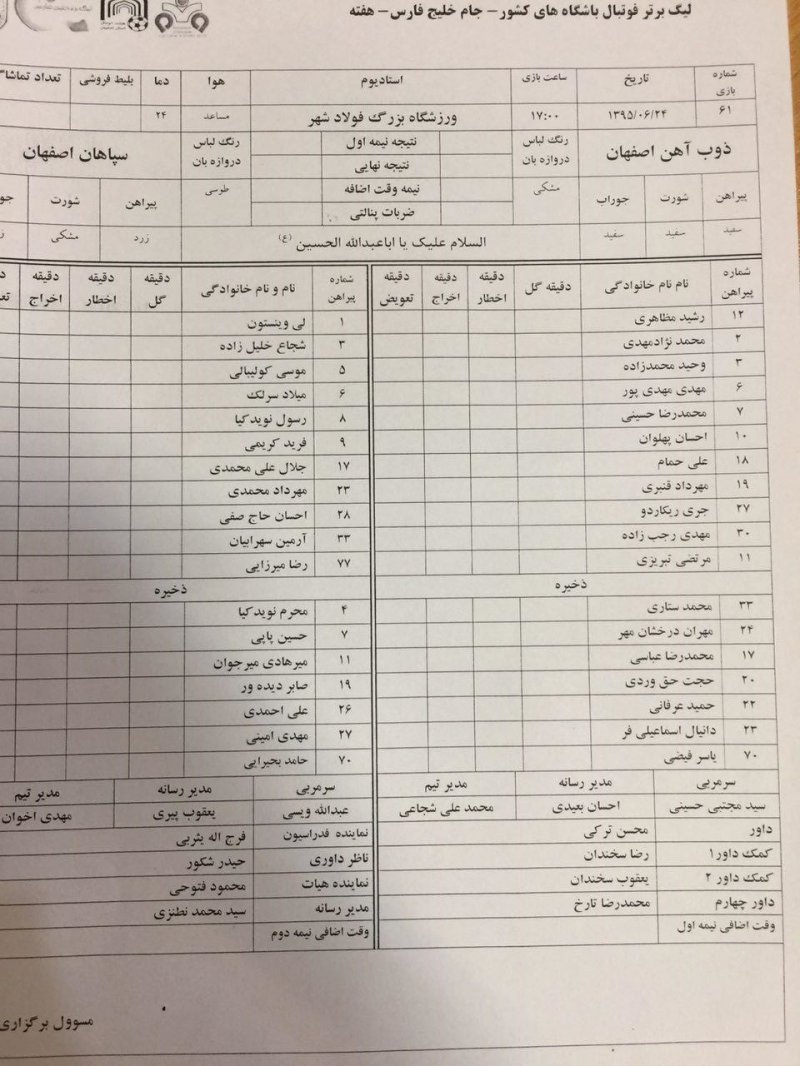 لیگ برتر فوتبال باشگاه های کشور – جام خلیج فارس – هفته
شماره بازی تاریخ ساعت بازی استادیوم هوا دما بلیط فروشی تعداد
۶۱ ۱۳۹۵/۰۶/۲۴ ۱۷:۰۰ ورزشگاه بزرگ فولاد شهر مساعد ۲۴
ذوب آهن اصفهان رنگ لباس دروازه بان نتیجه نیمه اول رنگ لباس دروازه بان سپاهان اصفهان
نتیجه نهایی
پیراهن شورت جوراب مشکی نیمه وقت اضافه طوسی پیراهن شورت
ضربات پنالتی
سفید سفید سفید السلام علیک یا اباعبدالله الحسین (ع) زرد مشکی
شماره پیراهن نام نام خانوادگی دقیقه گل دقیقه اخطار دقیقه اخراج دقیقه تعویض شماره پیراهن نام و نام خانوادگی دقیقه گل دقیقه اخطار دقیقه اخراج
۱۲ رشید مظاهری ۱ لی وینستون
۲ محمد نژادمهدی ۳ شجاع خلیل زاده
۳ وحید محمدزاده ۵ موسی کولیبالی
۶ مهدی مهدی پور ۶ میلاد سرلک
۷ محمدرضا حسینی ۸ رسول نویدکیا
۱۰ احسان پهلوان ۹ فرید کریمی
۱۸ علی حمام ۱۷ جلال علی محمدی
۱۹ مهرداد قنبری ۲۳ مهرداد محمدی
۲۷ جری ریکاردو ۲۸ احسان حاج صفی
۳۰ مهدی رجب زاده ۳۳ آرمین سهرابیان
۱۱ مرتضی تبریزی ۷۷ رضا میرزایی
ذخیره ذخیره
۳۳ محمد ستاری ۴ محرم نویدکیا
۲۴ مهران درخشان مهر ۷ حسین پاپی
۱۷ محمدرضا عباسی ۱۱ میرهادی میرجوان
۲۰ حجت حق وردی ۱۹ صابر دیده ور
۲۲ حمید عرفانی ۲۶ علی احمدی
۲۳ دانیال اسماعیلی فر ۲۷ مهدی امینی
۷۰ یاسر فیضی ۷۰ حامد بحیرایی
سرمربی مدیر رسانه مدیر تیم سرمربی مدیر رسانه مدیر تیم
سید مجتبی حسینی احسان بعیدی محمد علی شجاعی عبدالله ویسی یعقوب پیری مهدی اخوان
داور محسن ترکی نماینده فدراسیون فرج اله یثربی
کمک داور۱ رضا سخندان ناظر داوری حیدر شکور
کمک داور ۲ یعقوب سخندان نماینده هیات محمود فتوحی
داور چهارم محمدرضا تارخ مدیر رسانه سید محمد نطنزی
وقت اضافی نیمه اول وقت اضافی نیمه دوم
مسوول برگزاری